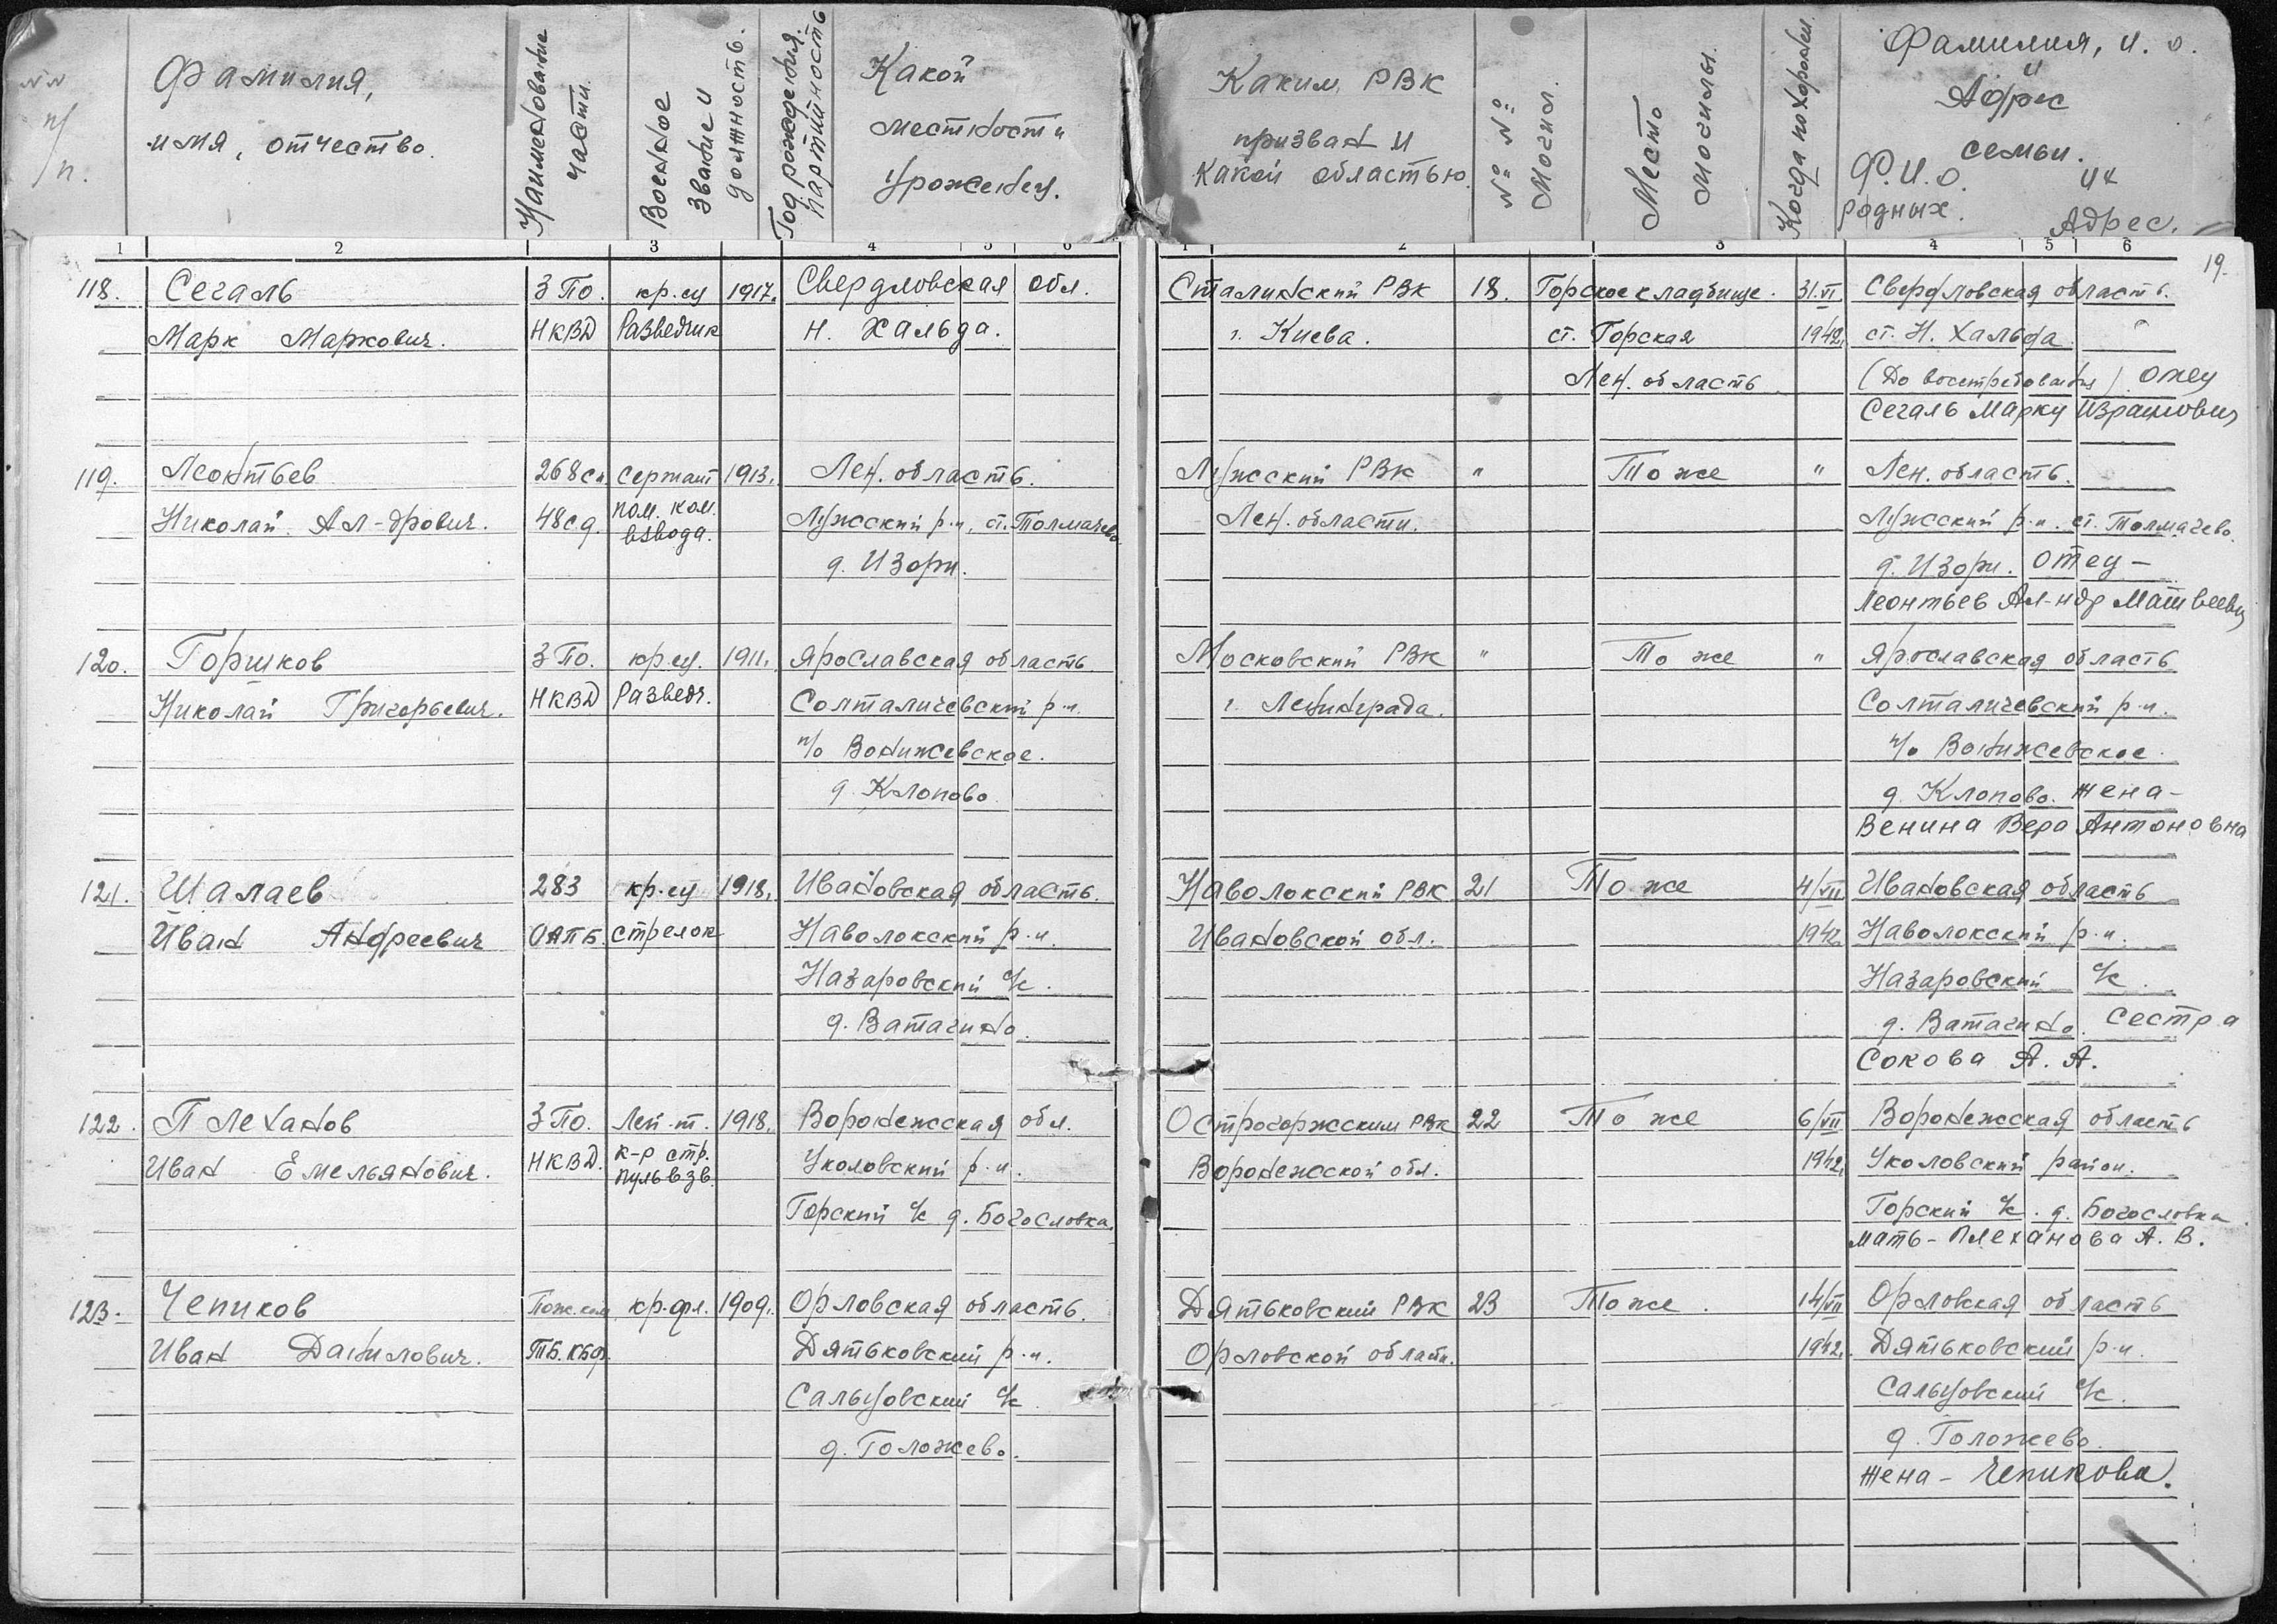 №№ п/п.
Фамилия,
имя, отчество.
Наименование части.
Военное звание и должность.
Год рождения. партийность
Какой
местности
уроженец.
Каким РВК
призван и
какой областью.
№№ №№ Могил.
Место могилы.
Когда похоронен.
Фамилия, и. о.
и
Адрес
семьи.
Ф.И.О. их
родных. Адрес.
1 2 3 4 5 6
1 2 3 4 5 6
19.
118. Сегаль 3 ПО. кр.ец 1917. Свердловская обл. Сталинский РВК 18. Горское кладбище. 31.VI Свердловская область.
Марк Маркович. НКВД Разведчик Н. Хальда. г. Киева. ст. Горская 1942. ст. Н. Хальда
Лен. область (До востребования) отец
Сегаль Марку
119. Леонтьев 268 сп сержант 1913. Лен. область. Лужский РВК " То же " Лен. область.
Николай Ал-дрович. 48 сд. пом. ком. взвода. Лужский р-н, ст. Толмачево Лен. области. Лужский р-н. ст. Толмачево.
д. Изори. д. Изори. отец -
Леонтьев Ал-ндр Матвеевич
120. Горшков 3 ПО. кр.ец. 1911. Ярославская область. Московский РВК " То же " Ярославская область
Николай Григорьевич. НКВД Разведч. Солталичевский р-н. г. Ленинграда. Солталичевский р-н.
п/о Вонижевское. п/о Вонижевское.
д. Клопово д. Клопово. жена -
Венина Вера Антоновна
121. Шалаев 283 кр.ец 1918. Ивановская область. Наволокский РВК 21 То же 4/VII Ивановская область
Иван Андреевич ОАПБ. стрелок Наволокский р-н. Ивановской обл. 1942 Наволокский р-н.
Назаровский с/с. Назаровский с/с.
д. Ватагино. д. Ватагино. сестра
Сокова А. А.
122. Плеханов 3 ПО. Лей-т. 1918. Воронежская обл. Острогоржским РВК 22 То же 6/VII Воронежская область
Иван Емельянович. НКВД. к-р стр. пульвзв. Уколовский р-н. Воронежской обл. 1942. Уколовский район.
Горский с/с д. Богословка. Горский с/с. д. Богословка.
мать - Плеханова А. В.
123. Чепиков Пож.ком кр.фл. 1909. Орловская область. Дятьковский РВК 23 То же. 14/VII Орловская область
Иван Данилович. ТБ.КБФ. Дятьковский р-н. Орловской области. 1942. Дятьковский р-н.
Сальцовский с/с Сальцовский с/с.
д.Голожево. д. Голожево.
жена - Чепикова.